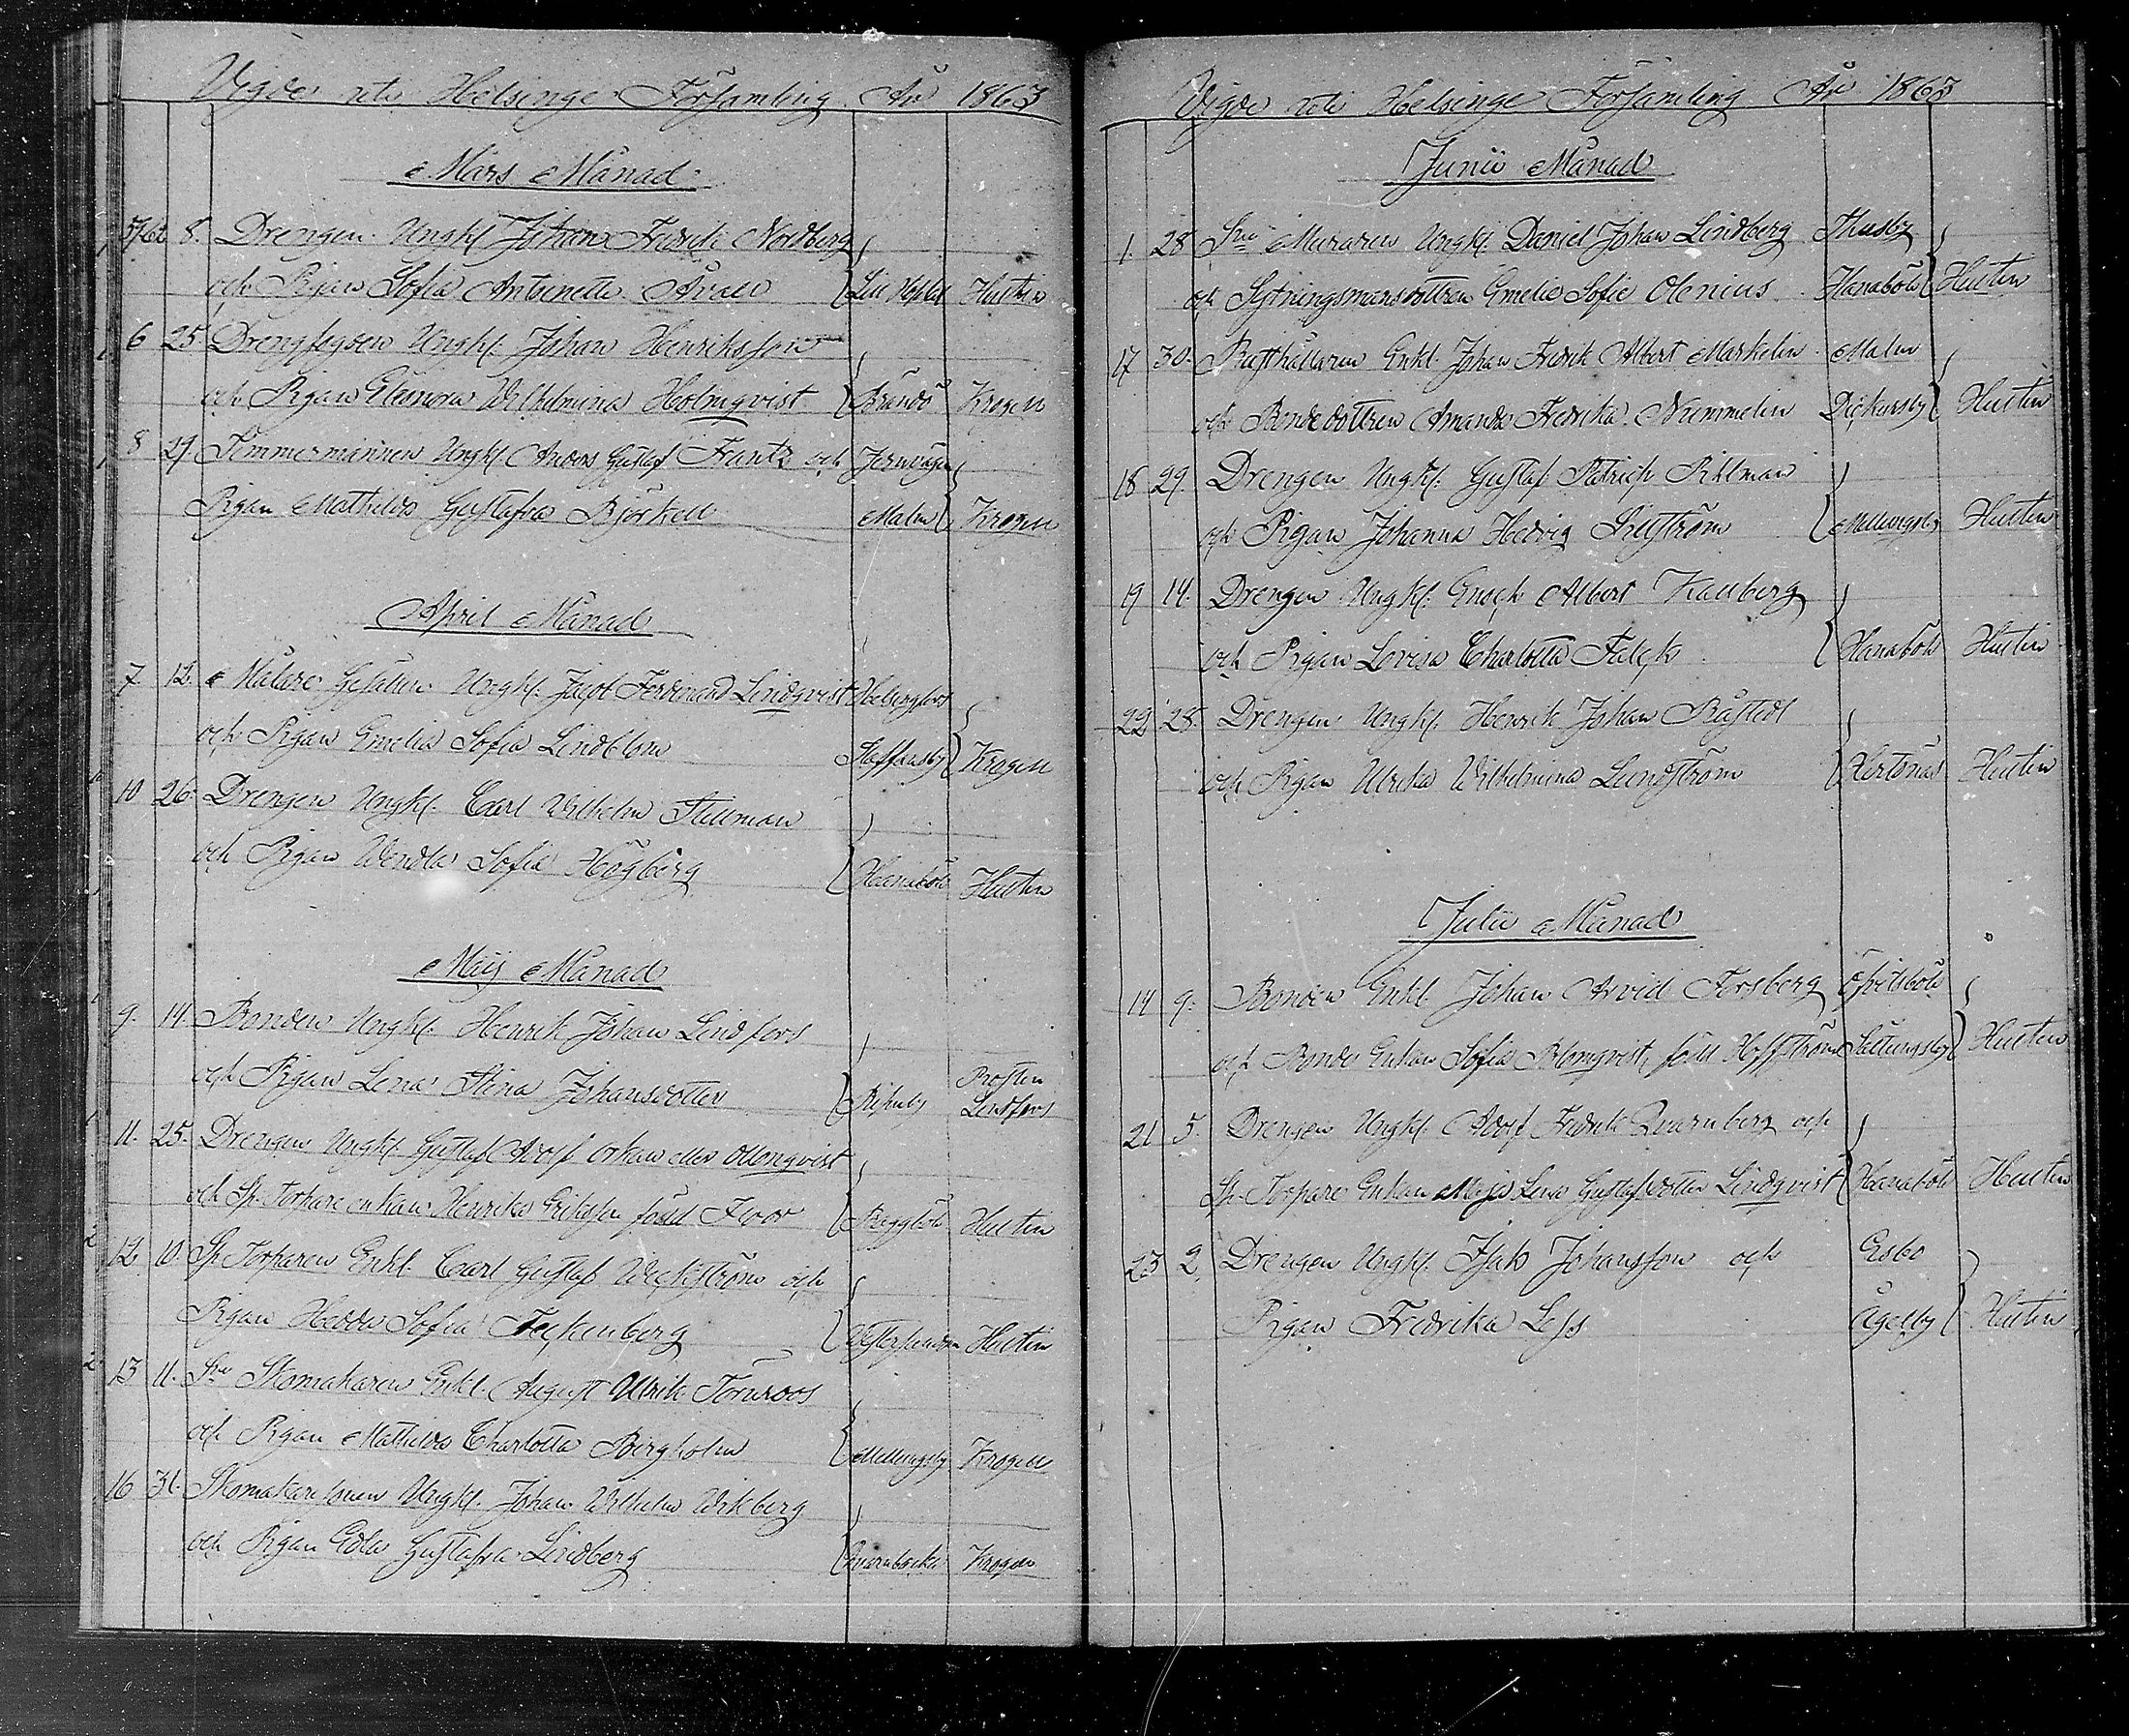 Vigde uti Helsinge Församling År 1863
Mars Månad
8. Drengen Ungk. Johan Fredrik Nordberg
och Pigan Sofia Antoinetta Hustin
6 25. Drengfogden Ungk. Johan Henriksson
och Pigan Eleonora Wilhelmina Holmqvist Brändö Krogell
8 29. Timmermannen Ungk. Anders Gustaf Frantz och
Pigan Mathilda Gustafva Björkell Malm Krogell
April Månad
7 12. Målare Gesällen Ungk. Jacob Ferdinand Lindqvist Helsingfors
och Pigan Emelia Sofia Lindblom Staffansby Krogell
10 26. Drengen Ungk. Carl Wilhelm Stillman
och Pigan Wendla Sofia Högberg Hanaböle Hustin
Maij Månad
9. 14. Bonden Ungk. Henrik Johan Lindfors
och Pigan Lena Stina Johansdotter Prosten Lindfors
11. 25. Drengen Ungk. Gustaf Adolf eller Holmqvist
och Sp. Torpare enkan Henrika Eriksson född Baggböle Hustin
12 10. Sp. Torparen Enkl. Carl Gustaf Weckström och
Pigan Hedda Sofia Feckenberg Westersundom Hustin
13 11. Skomakaren Enkl. August Ulrik Törnroos
och Pigan Mathilda Charlotta Bergholm Mellungsby Krogell
16 31. Skomakaresonen Ungk. Johan Wilhelm Wikberg
och Pigan Edla Gustafva Lindberg Qvarnbacka Krogell
Vigde uti Helsinge Församling År 1863
Junii Månad
1. 28. Muraren Ungk. Daniel Johan Lindberg Thusby
och Sytningsmansdottren Emelie Sofie Olenius Hanaböle Hustin
17 30. Rusthållaren Enkl. Johan Fredrik Albert Markelin Malm
och Bondedottren Amanda Fredrika Nummelin Dickursby Hustin
18 29. Drengen Ungk. Gustaf Patrick Pihlman
och Pigan Johanna Hedvig Mellungsby Hustin
19 14. Drengen Ungk. Enoch Albert
och Pigan Lovisa Charlotta Falck Hanaböle Hustin
22 28. Drengen Ungk. Henrik Johan Råstedt
och Pigan Ulrika Wilhelmina Lundström Hertonäs Hustin
Julii Månad
14 9. Bonden Enkl. Johan Arvid Forsberg
och Bonde Enkan Sofia Blomqvist, född Hoffström Hustin
21 5. Drengen Ungk. Adolf Fredrik Qvarnberg och
Sp. Torpare Enkan Maja Lena Gustafsdotter Lindqvist Hanaböle Hustin
23 2. Drengen Ungk. Isak Johansson och Esbo
Pigan Fredrika Less Ågelby Hustin